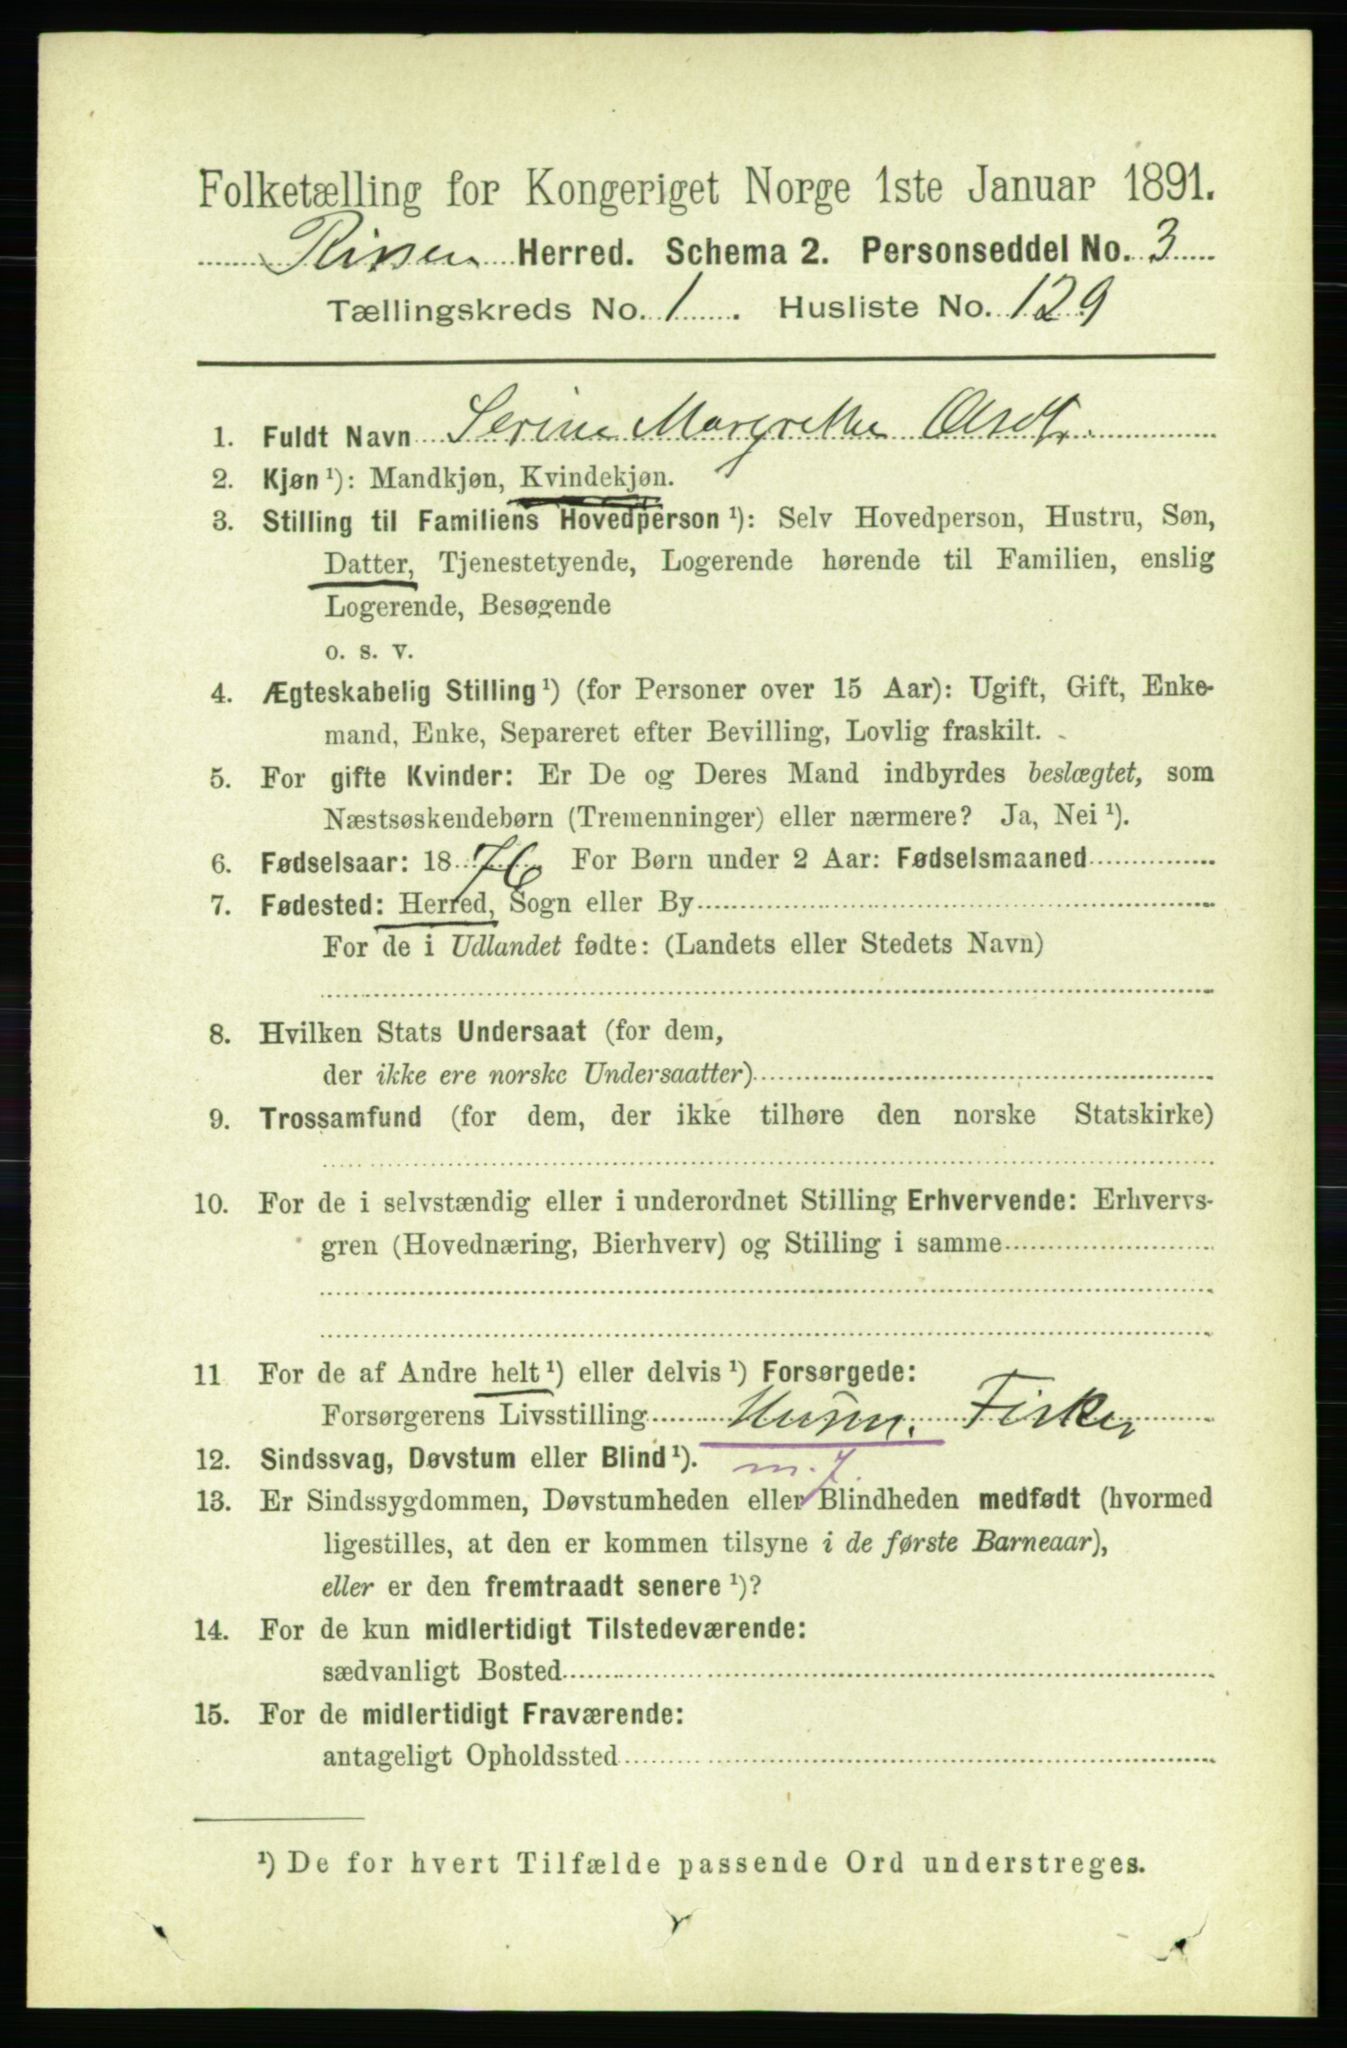 Folketælling for Kongeriget Norge 1ste Januar 1891.
Rissen Herred. Schema 2. Personseddel No. 3
Tællingskreds No. 1. Husliste No. 129
1. Fuldt Navn Serine Margrethe Olsdt.
2. Kjøn ¹): Mandkjøn, Kvindekjøn.
3. Stilling til Familiens Hovedperson ¹): Selv Hovedperson, Hustru, Søn,
Datter, Tjenestetyende, Logerende hørende til Familien, enslig
Logerende, Besøgende
o. s. v.
4. Ægteskabelig Stilling ¹) (for Personer over 15 Aar): Ugift, Gift, Enke-
mand, Enke, Separeret efter Bevilling, Lovlig fraskilt.
5. For gifte Kvinder: Er De og Deres Mand indbyrdes beslægtet, som
Næstsøskendebørn (Tremenninger) eller nærmere? Ja, Nei ¹).
6. Fødselsaar: 1876 For Børn under 2 Aar: Fødselsmaaned
7. Fødested: Herred, Sogn eller By
For de i Udlandet fødte: (Landets eller Stedets Navn)
8. Hvilken Stats Undersaat (for dem,
der ikke ere norske Undersaatter)
9. Trossamfund (for dem, der ikke tilhøre den norske Statskirke)
10. For de i selvstændig eller i underordnet Stilling Erhvervende: Erhvervs-
gren (Hovednæring, Bierhverv) og Stilling i samme
11 For de af Andre helt ¹) eller delvis ¹) Forsørgede:
Forsørgerens Livsstilling Husm. Fisker
12. Sindssvag, Døvstum eller Blind ¹). m. J.
13. Er Sindssygdommen, Døvstumheden eller Blindheden medfødt (hvormed
ligestilles, at den er kommen tilsyne i de første Barneaar),
eller er den fremtraadt senere ¹)?
14. For de kun midlertidigt Tilstedeværende:
sædvanligt Bosted
15. For de midlertidigt Fraværende:
antageligt Opholdssted
¹) De for hvert Tilfælde passende Ord understreges.